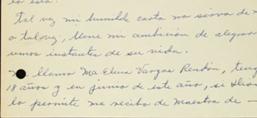 Tal vez mi humilde carta no sirva de m
o talvez, llene mi ambición de alegrar
unos instantes de su vida.
llamo Ma. Elena Vargas Rendón, teng
18 años y en junio de este año, si Dios
lo permite me recibo de Maestra de